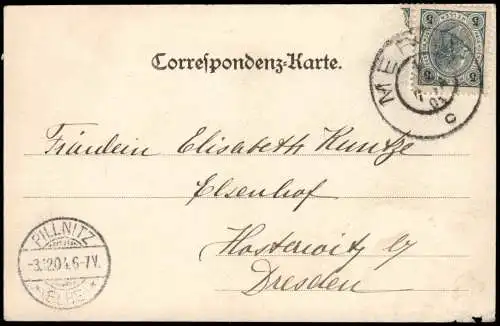 Correspondenz-Karte.
5 5
MER
C
Fräulein Elisabeth Kuntze
Elsenhof
Hosterwitz b/
Dresden
PILLNITZ
-3.12.04.6-7V.
* (ELBE) *